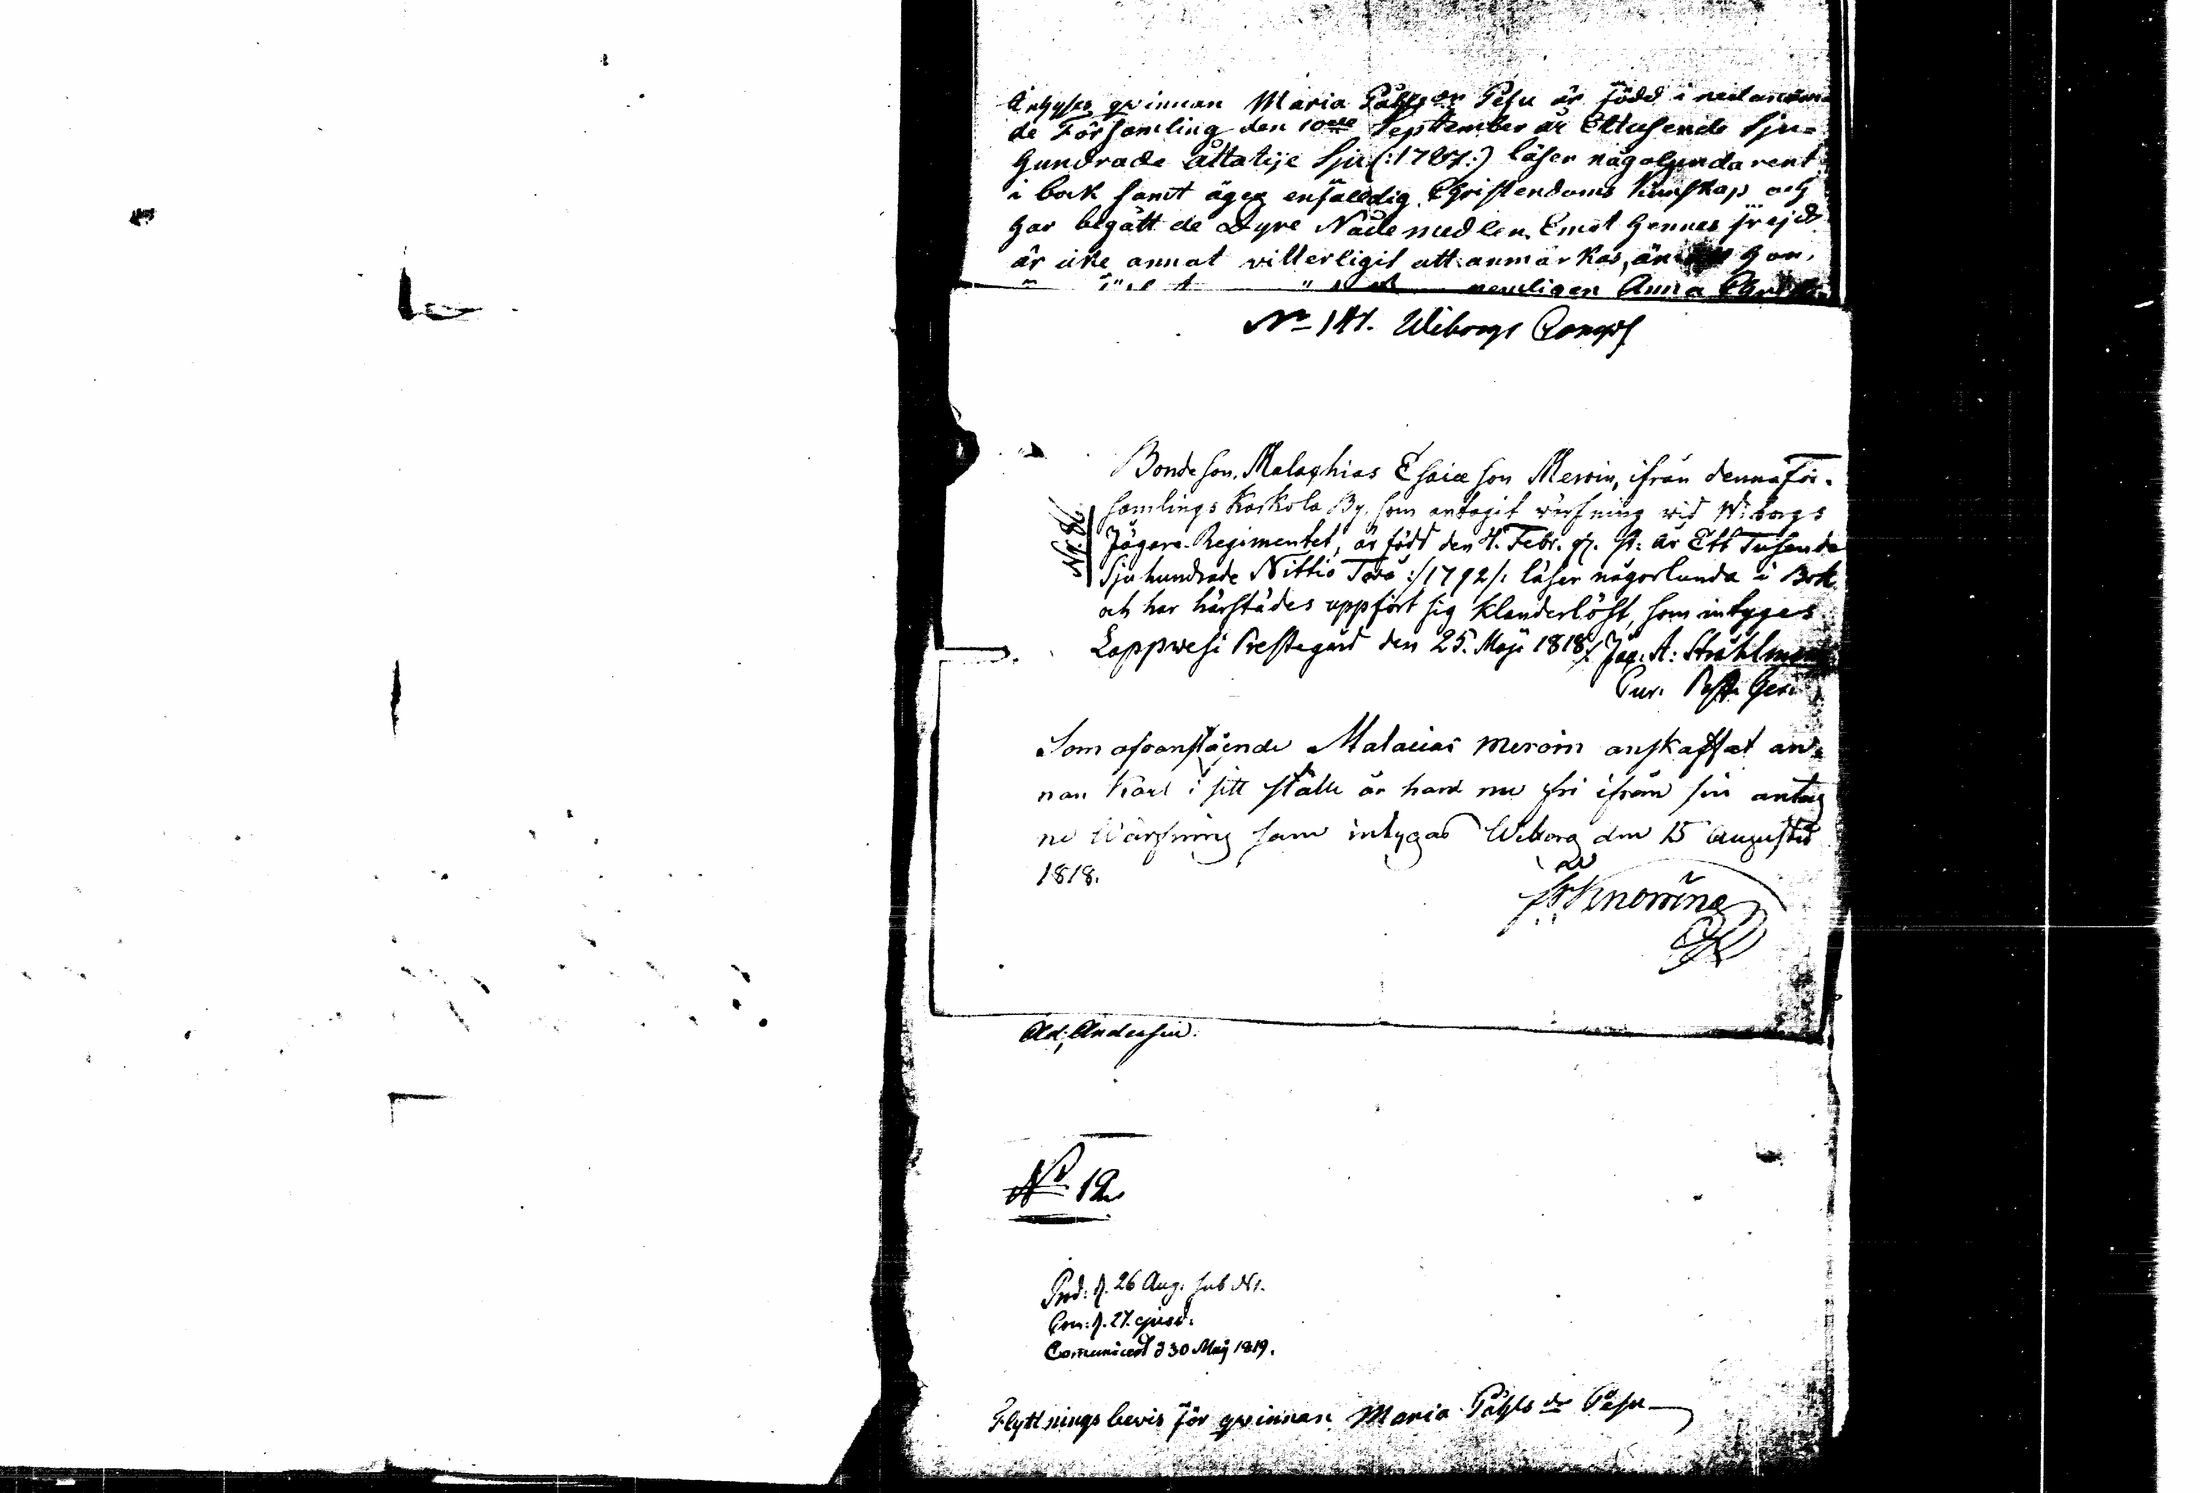 Intyges qvinnan Maria Påhlsdr Pesu är född i nedannämn-
de Församling den 10de September år Ettusende Sju-
hundrade åttatije Sju (:1787:) läser någolunda rent
i bok samt äger enfalldig Christendoms Kunskap och
har begått de Dyre Nådemedlen. Emot hennes frejd
är icke annat vitterligit att anmärkas, än att hon,
nemligen Anna
No 141. Wiborgs Comp.
Bondeson, Malachias Esaiæson Meroin, ifrån denna För-
samlings Kaskola By, som antagit wärfning wid Wiborgs
Jägare-Regimentet, är född den 4. Febr. g. st: år Ett Tusende
Sju hundrade Nittio Två :/1792/: läser någorlunda i Bok
och har härstädes uppfört sig klanderlöst, som intyges
Lappwesi Prestegård den 25. Maji 1818. Jac. A: Stråhlman
Nr. 86
Som ofvanstående Malacias Meroin anskaffat an-
nan Karl i sitt ställe är han nu fri ifrån sin antag
ne Wärfning som intygas Wiborg den 15 Augusti
1818.
Knorring
Ad. Andersin.
No 12.
Prod: d. 26 Aug. sub N 1.
Con: d. 27. ejusd.
Comunicerd d 30 Maij 1819.
Flyttningsbevis för qvinnan Maria Påhls dr Pesu